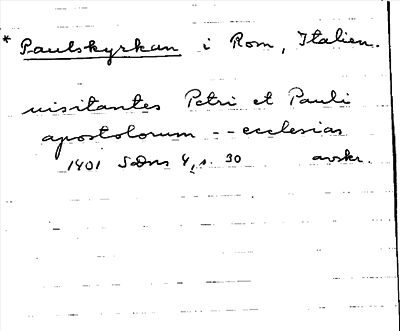 * Paulskyrkan i Rom, Italien.
visitantes Petri et Pauli
apostolorum -- ecclesias
1401 SDns 4, s. 30 avskr.